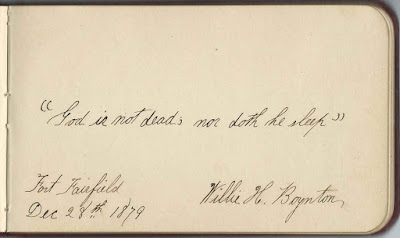 "God is not dead; nor doth he sleep"
Fort Fairfield
Dec 28th 1879
Willie H. Boynton